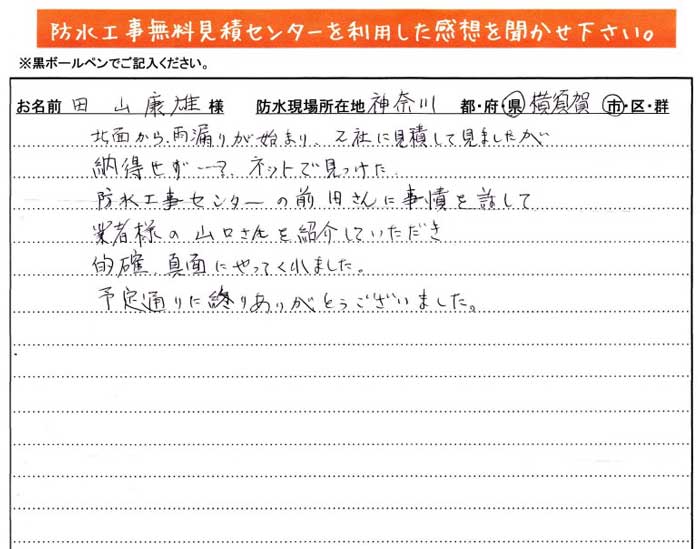 防水工事無料見積センターを利用した感想を聞かせ下さい。
※黒ボールペンでご記入ください。
お名前 田山康雄 様 防水現場所在地 神奈川 都・府・県 横須賀 市・区・群
北面から雨漏りが始まり、2社に見積して見ましたが
納得せず…?、ネットで見つけた、
防水工事センターの前田さんに事情を話して
業者様の山口さんを紹介していただき
的確、真面にやってくれました。
予定通りに終りありがとうございました。